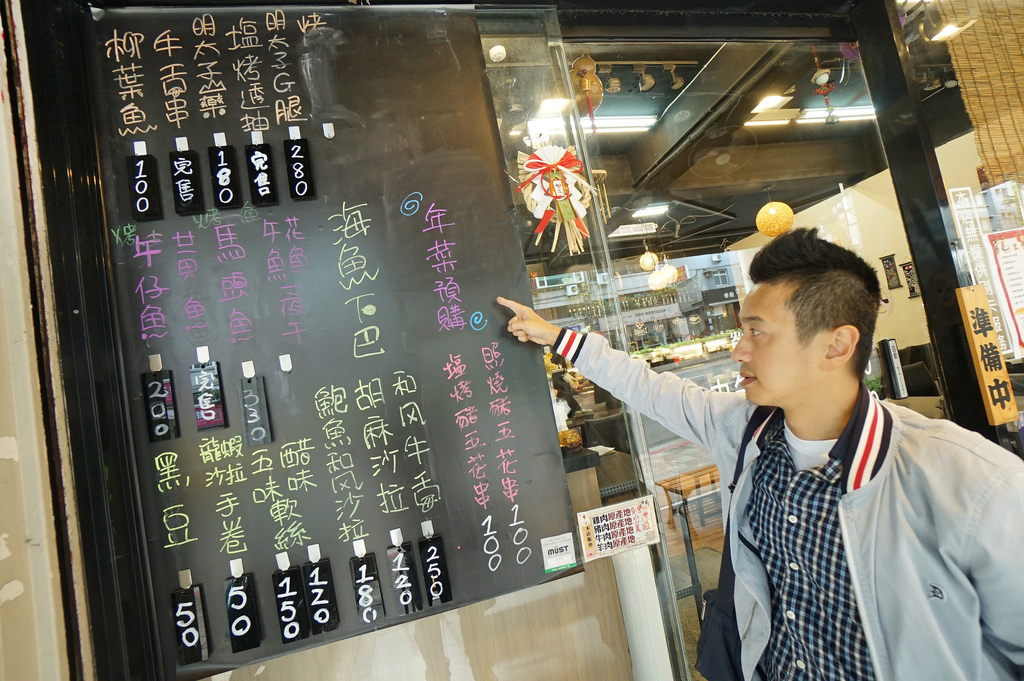 烤
明太子G腿
塩烤透抽
明太子山藥
牛舌串
柳葉魚
280
完售
180
完售
100
年菜預購
海魚下巴
花魚一夜干
午魚一夜干
烤魚
馬頭魚
黃魚
烤
午仔魚
330
完售
200
照燒豬五花串
100
塩烤豬五花串
100
和风牛舌
胡麻沙拉
鮑魚和风沙拉
醋味
五味軟絲
龍蝦沙拉手卷
黑豆
250
120
180
120
150
50
50
雞肉原產地
豬肉原產地
牛肉原產地
羊肉原產地
MÜST
準備中